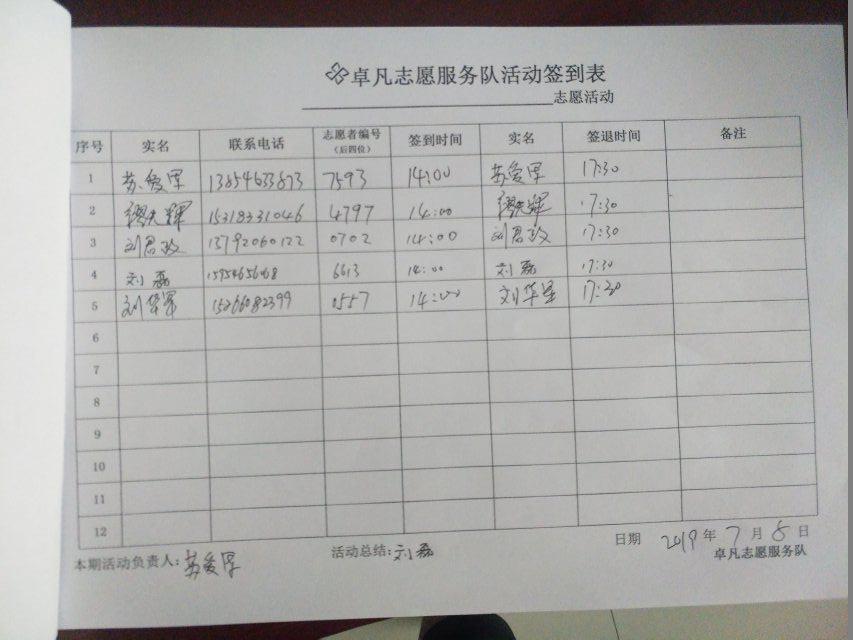 卓凡志愿服务队活动签到表
志愿活动
序号 实名 联系电话 志愿者编号（后四位） 签到时间 实名 签退时间 备注
1 苏爱军 13854633873 7593 14:00 苏爱军 17:30
2 15318331046 4797 14:00 17:30
3 刘君政 13792060122 0702 14:00 刘君政 17:30
4 刘磊 6613 14:00 刘磊 17:30
5 刘华军 15266082399 0557 14:00 刘华军 17:30
6
7
8
9
10
11
12
日期 2019年7月8日
本期活动负责人:苏爱军 活动总结:刘磊 卓凡志愿服务队